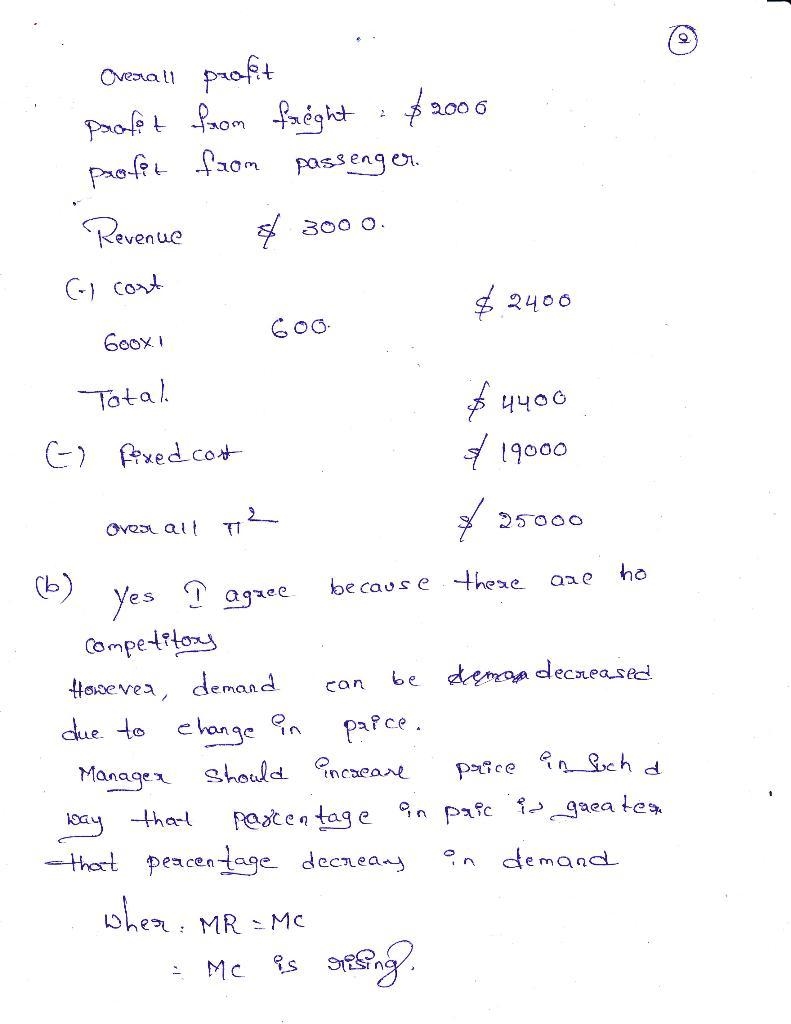 2
Overall profit
profit from freight : $ 2000
profit from passenger.
Revenue $ 3000.
(-) cost $ 2400
600x1 600
Total. $ 4400
(-) fixed cost $ 19000
over all π2 $ 25000
(b) Yes I agree because there are no
competitors
However, demand can be decreased
due to change in price.
Manager should increase price in such a
way that percentage in pric is greater
that percentage decreas in demand
wher : MR = MC
= MC is rising.